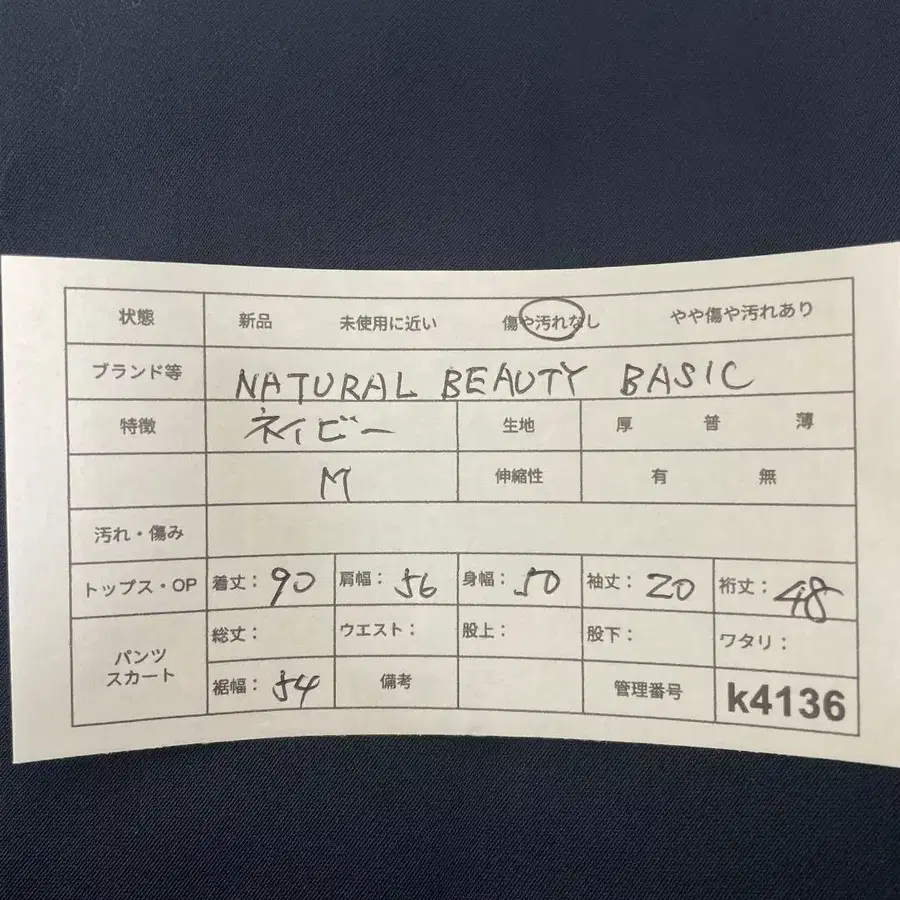 状態 新品 未使用に近い 傷や汚れなし やや傷や汚れあり
ブランド等 NATURAL BEAUTY BASIC
特徴 ネイビー 生地 厚 普 薄
M 伸縮性 有 無
汚れ・傷み
トップス・OP 着丈：90 肩幅：56 身幅：50 袖丈：20 裄丈：48
パンツ スカート 総丈： ウエスト： 股上： 股下： ワタリ：
裾幅：54 備考 管理番号 k4136